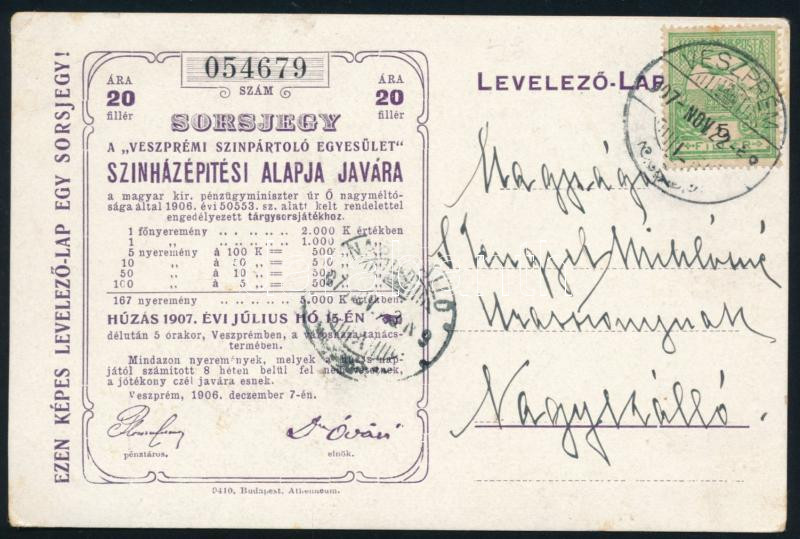 EZEN KÉPES LEVELEZŐ-LAP EGY SORSJEGY!
ÁRA 20 fillér
054679
SZÁM
ÁRA 20 fillér
SORSJEGY
A „VESZPRÉMI SZINPÁRTOLÓ EGYESÜLET"
SZINHÁZÉPITÉSI ALAPJA JAVÁRA
a magyar kir. pénzügyminiszter úr Ő nagyméltó-
sága által 1906. évi 50553. sz. alatt kelt rendelettel
engedélyezett tárgysorsjátékhoz.
1 főnyeremény .. .. .. .. .. 2.000 K értékben
1 „ .. .. .. .. .. 1.000 „
5 nyeremény á 100 K = 500 „
10 „ á 50 „ = 500 „
50 „ á 10 „ = 500 „
100 „ á 5 „ = 500 „
167 nyeremény .. .. .. .. 5.000 K értékben
HÚZÁS 1907. ÉVI JÚLIUS HÓ 15-ÉN
délután 5 órakor, Veszprémben, a városháza tanács-
termében.
Mindazon nyeremények, melyek a húzás nap-
jától számított 8 héten belül fel nem vétetnek,
a jótékony czél javára esnek.
Veszprém, 1906. deczember 7-én.
Dr Óvári
pénztáros.
elnök.
9410, Budapest, Athenaeum.
LEVELEZŐ-LAP
VESZPRÉM
907-NOV
Nagyságos
Lengyel Miklósné
Úrasszonynak
Nagykálló